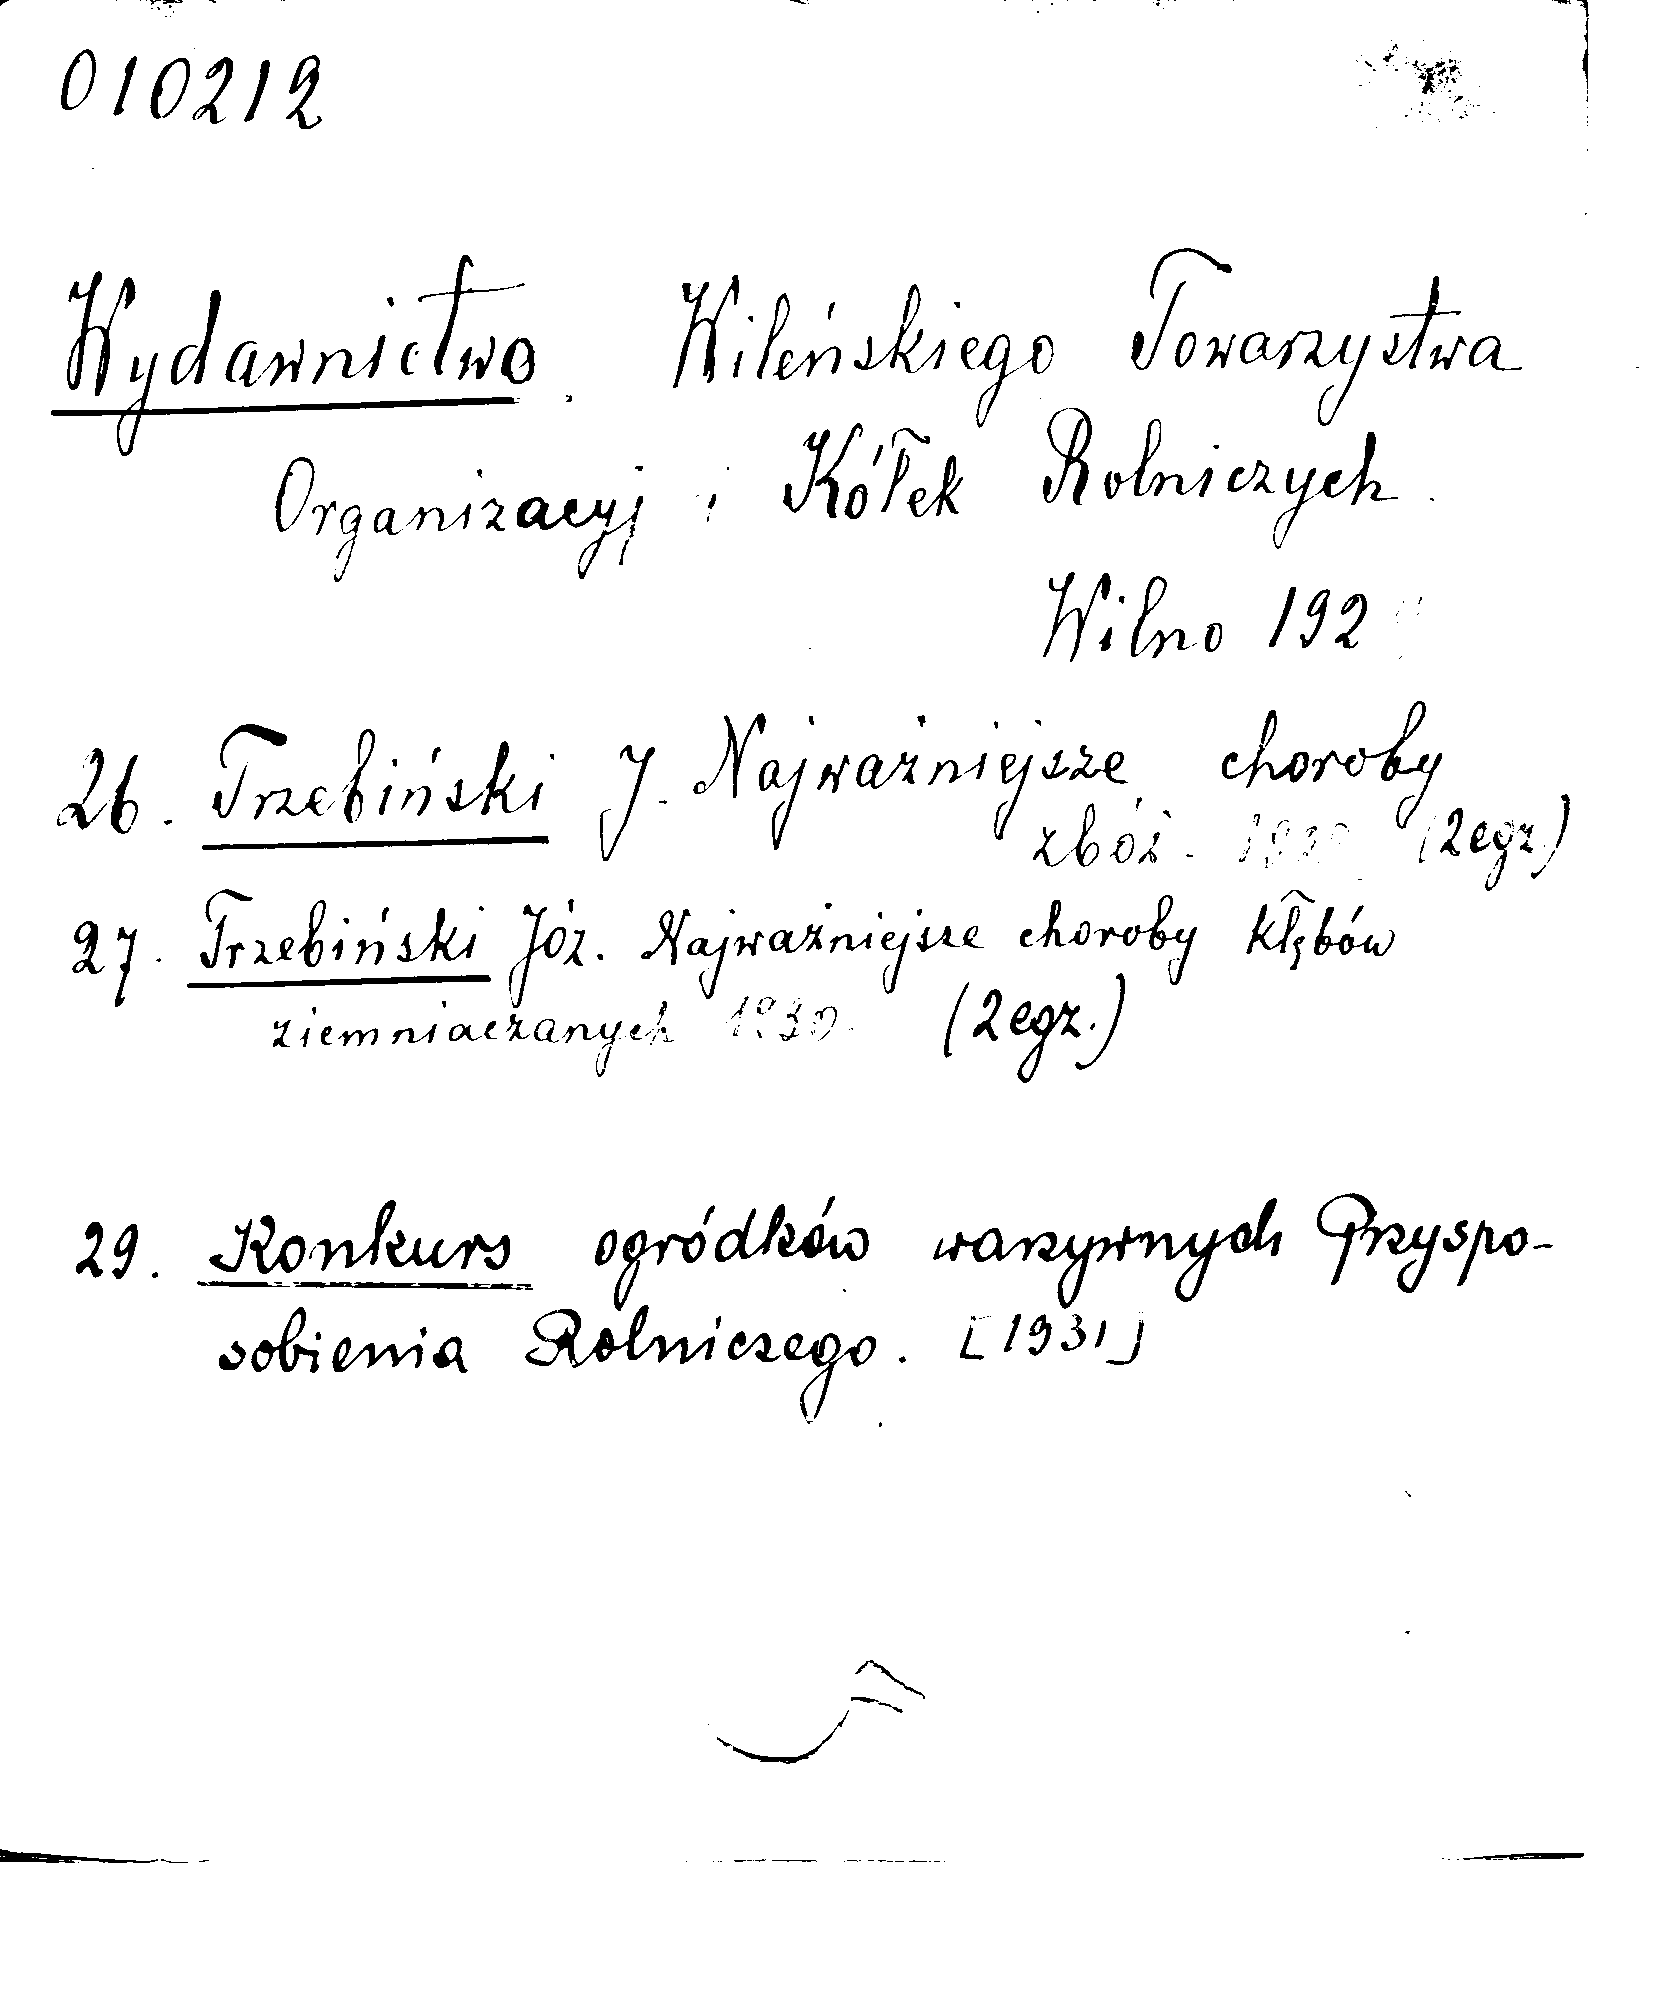 010212
Wydawnictwo. Wileńskiego Towarzystwa
Organizacyj i Kółek Rolniczych.
Wilno 192
26. Trzebiński J. Najważniejsze choroby
zbóż. (2egz.)
27. Trzebiński Józ. Najważniejsze choroby kłębów
ziemniaczanych 1930. (2egz.)
29. Konkurs ogródków warzywnych Przyspo-
sobienia Rolniczego. [1931]